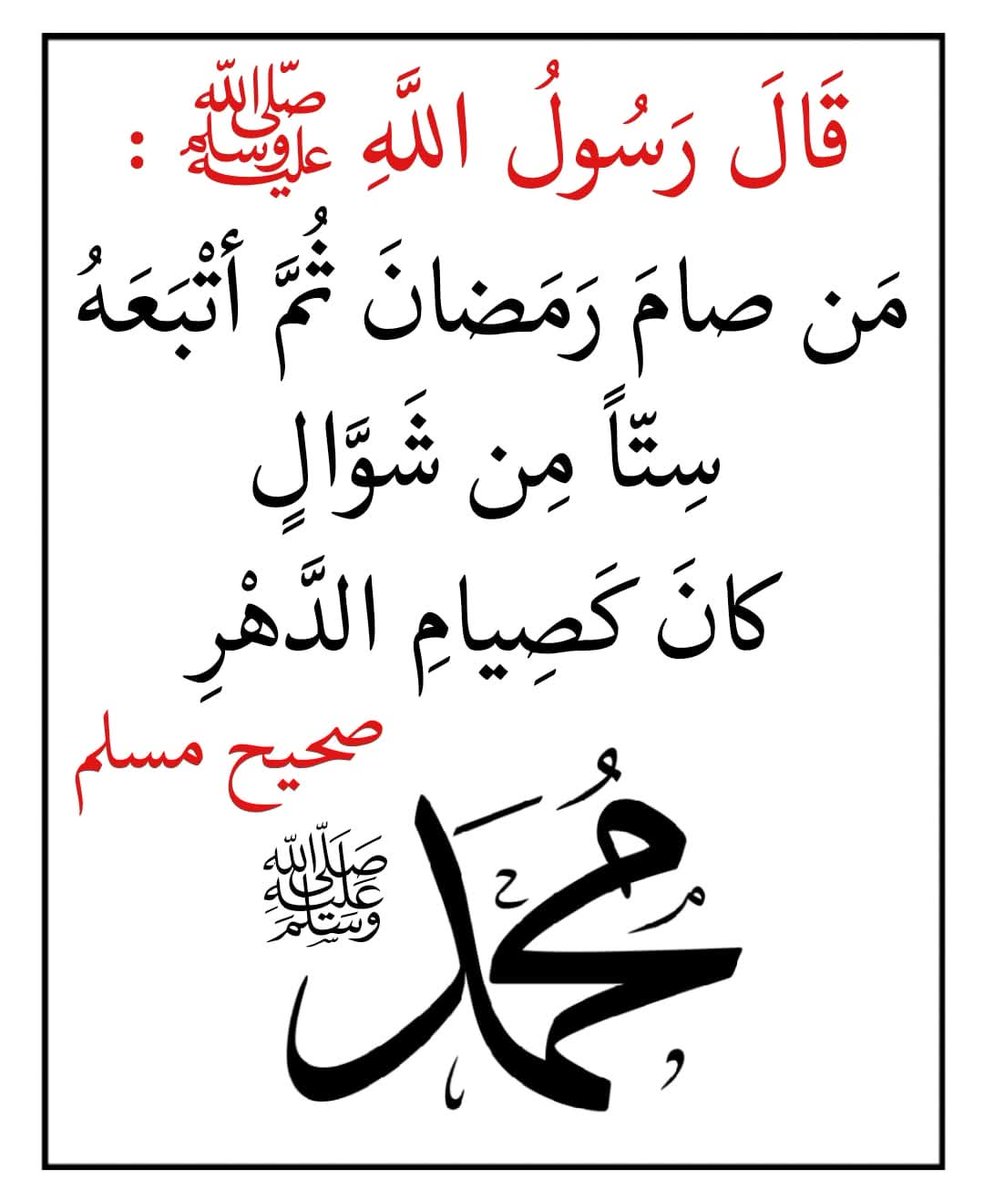 قَالَ رَسُولُ اللَّهِ صلى الله عليه وسلم :
مَن صامَ رَمَضانَ ثُمَّ أتْبَعَهُ
سِتّاً مِن شَوَّالٍ
كانَ كَصِيامِ الدَّهْرِ
صحيح مسلم
مُحمَّد
صَلَّى اللَّه عَلَيْهِ وَسَلَّمَ